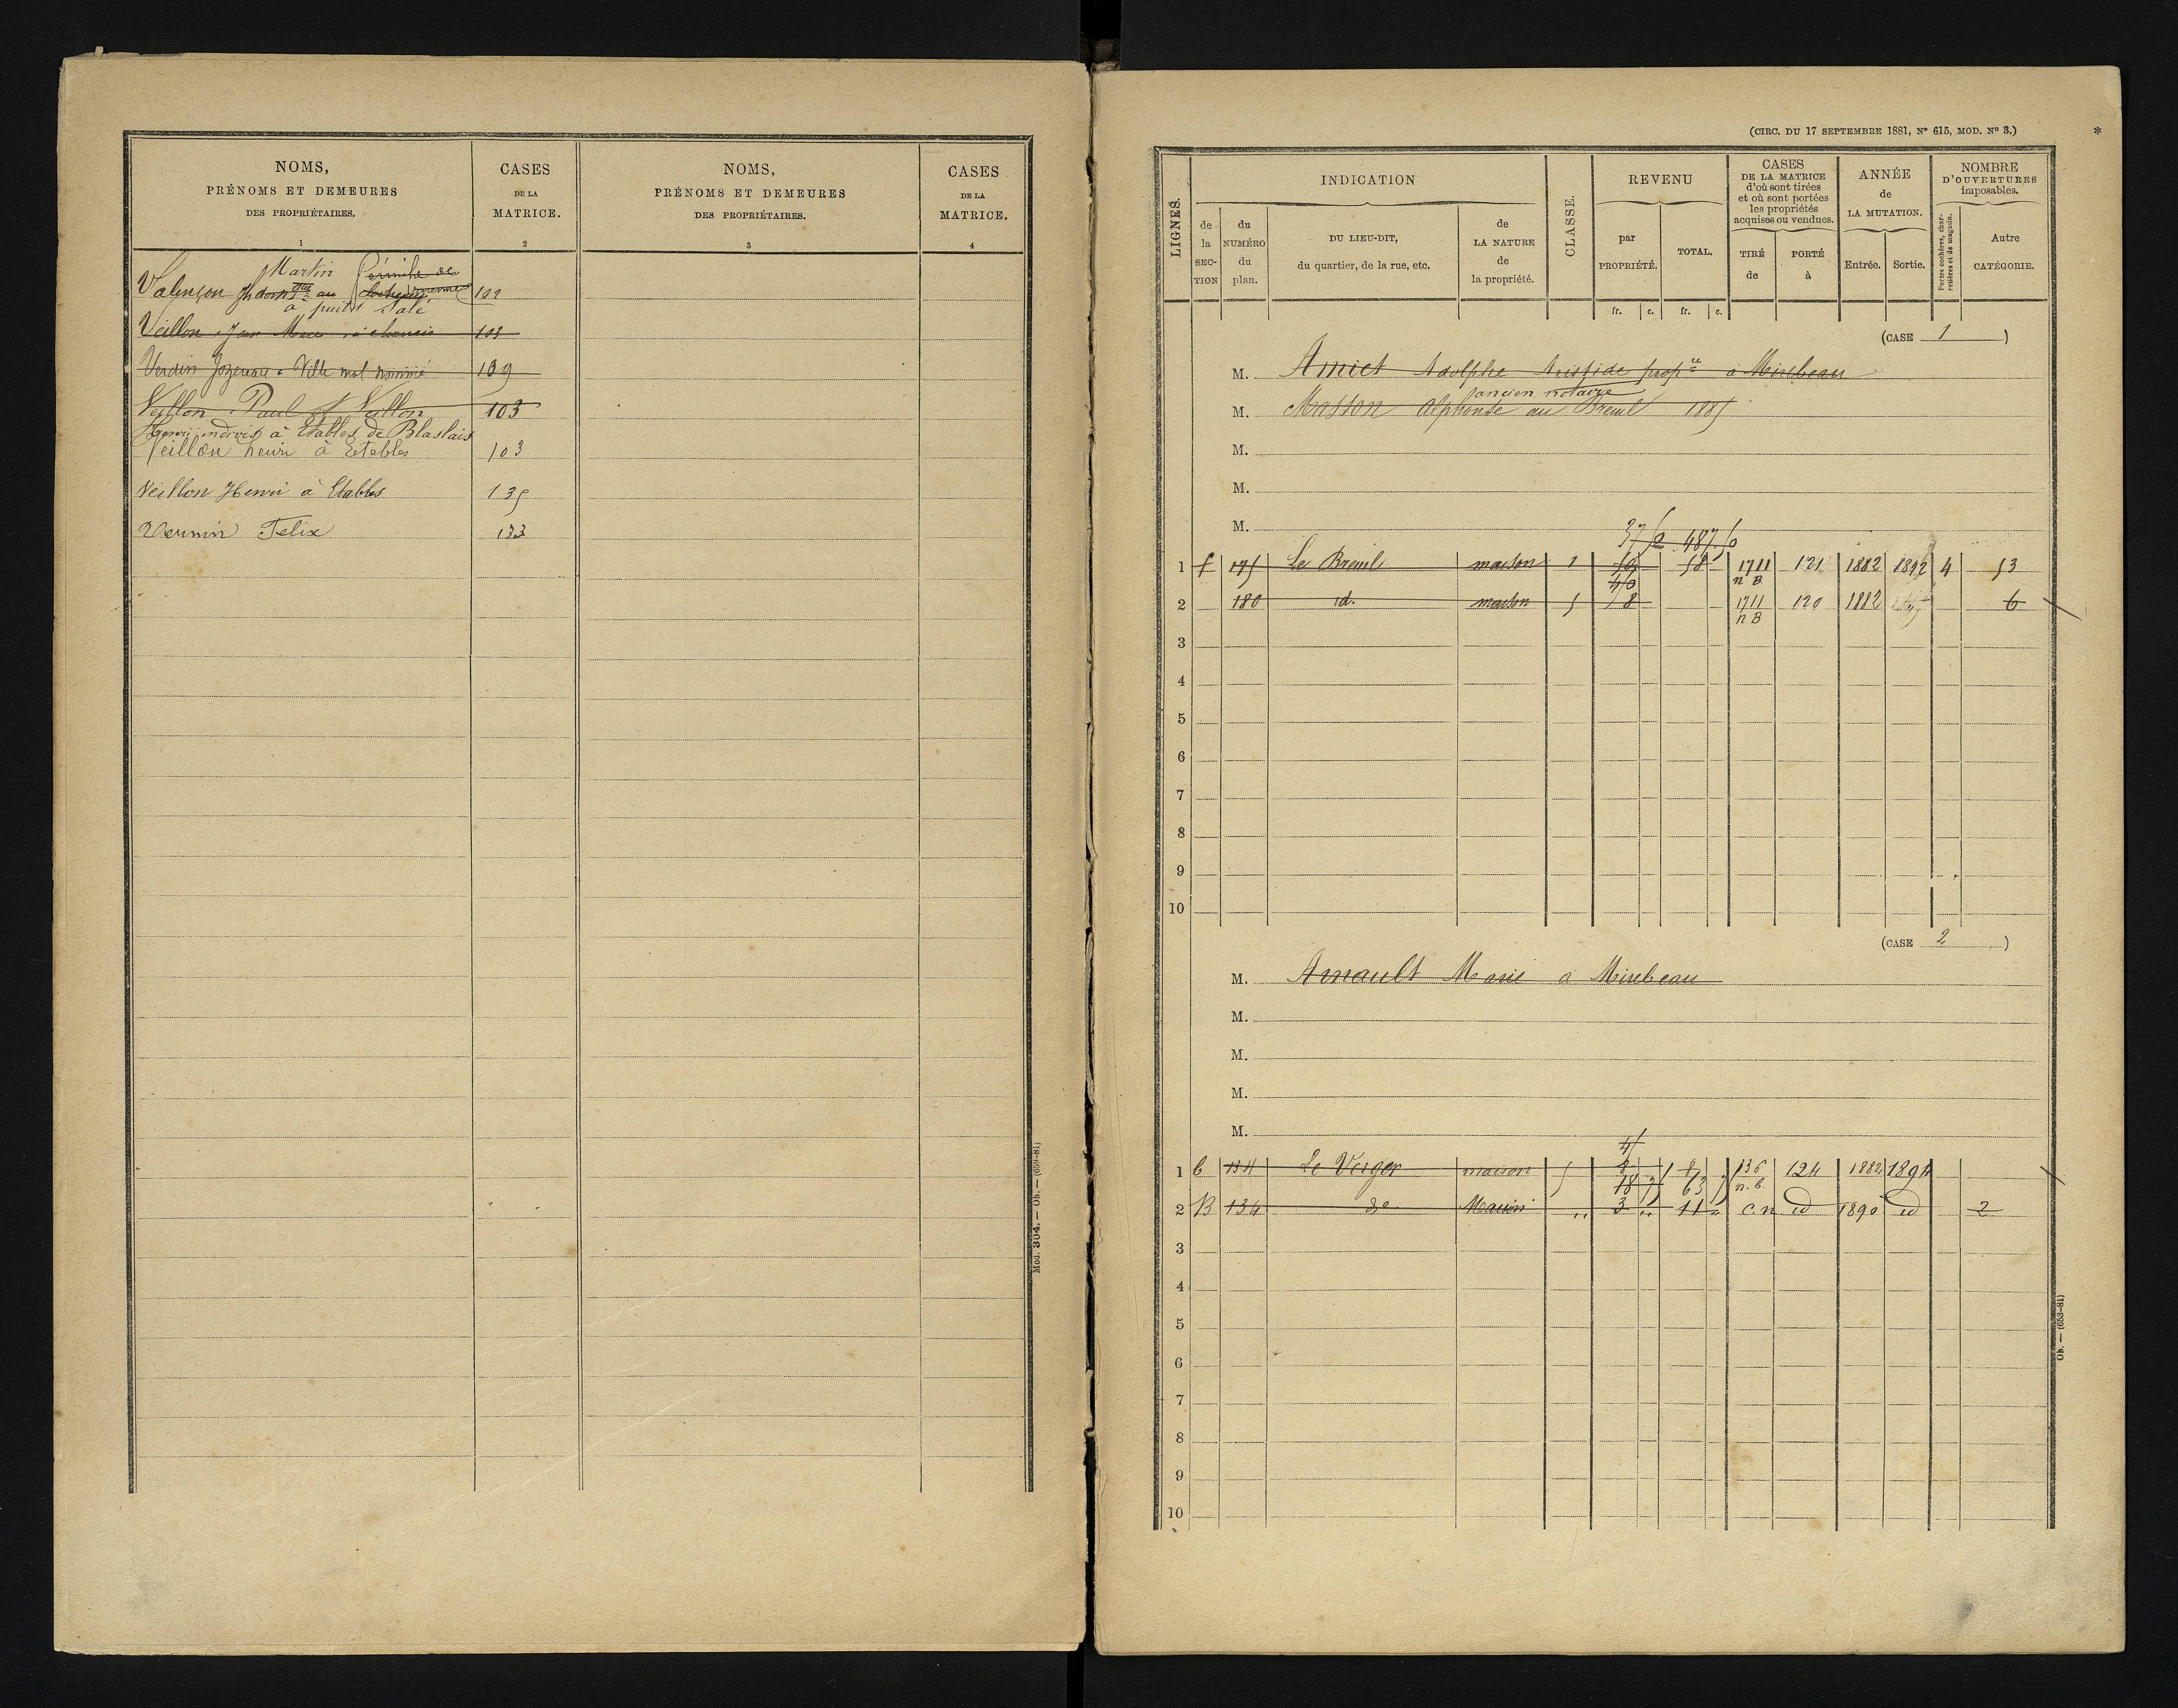 NOMS,
PRÉNOMS ET DEMEURES
DES PROPRIÉTAIRES.
1
CASES
DE LA
MATRICE.
2
NOMS,
PRÉNOMS ET DEMEURES
DES PROPRIÉTAIRES.
3
CASES
DE LA
MATRICE.
4
Martin
Valençon au 102
à puits Salé
Veillon Jean 103
Verdin Jozereau a Ville mal nommé 139
Veillon Paul et Veillon 103
Henri indivis à Etables de Blaslais
Veillon henri à Etables 103
Veillon Henri à Etables 135
Vermin Felix 133
Mod. 304. — Ob. — (659-81)
(CIRC. DU 17 SEPTEMBRE 1881, N° 615, MOD. N° 3.)
*
LIGNES.
INDICATION
de la SECTION
du NUMÉRO du plan.
DU LIEU-DIT,
du quartier, de la rue, etc.
de LA NATURE de la propriété.
CLASSE.
REVENU
par PROPRIÉTÉ.
TOTAL.
fr. c. fr. c.
CASES
DE LA MATRICE
d'où sont tirées
et où sont portées
les propriétés
acquises ou vendues.
TIRÉ de
PORTÉ à
ANNÉE
de
LA MUTATION.
Entrée. Sortie.
NOMBRE
D'OUVERTURES
imposables.
Portes cochères, charretières et de magasin.
Autre CATÉGORIE.
(CASE 1 )
M. Amiet Adolphe Aristide prop.re a Mirebeau
ancien notaire
M. Masson Alphonse au Breuil 1885
M.
M.
M.
1 175 Le Breuil maison 1 1711 121 1882 1892 4 53
n B
2 180 id. maison 5 8 1711 120 1882 6
n B
3
4
5
6
7
8
9
10
(CASE 2 )
M. Arnault Marie a Mirebeau
M.
M.
M.
M.
1 134 Le Verger maison 5 136 124 1882 1894
n. b.
2 B 134 do Maison 3 11 c. n id 1890 id 2
3
4
5
6
7
8
9
10
Ob. — (653-81)